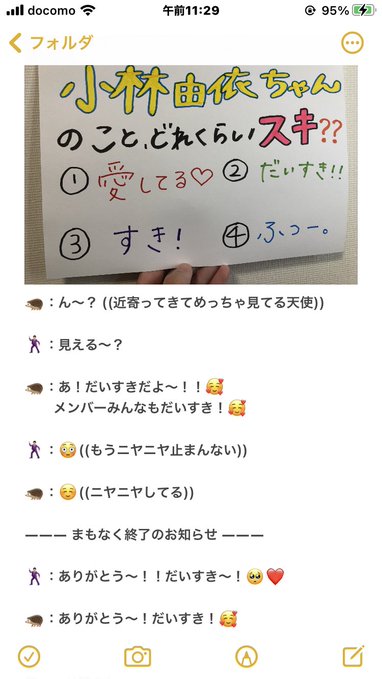 docomo 午前11:29 95%
フォルダ
小林由依ちゃん
のこと、どれくらいスキ??
① 愛してる♡ ② だいすき!!
③ すき! ④ ふつー。
🦔：ん〜？ ((近寄ってきてめっちゃ見てる天使))
🕺🏻：見える〜？
🦔：あ！だいすきだよ〜！！🥰
メンバーみんなもだいすき！🥰
🕺🏻：😳((もうニヤニヤ止まんない))
🦔：☺️((ニヤニヤしてる))
ーーー まもなく終了のお知らせ ーーー
🕺🏻：ありがとう〜！！だいすき〜！🥺❤️
🦔：ありがとう〜！だいすき！🥰